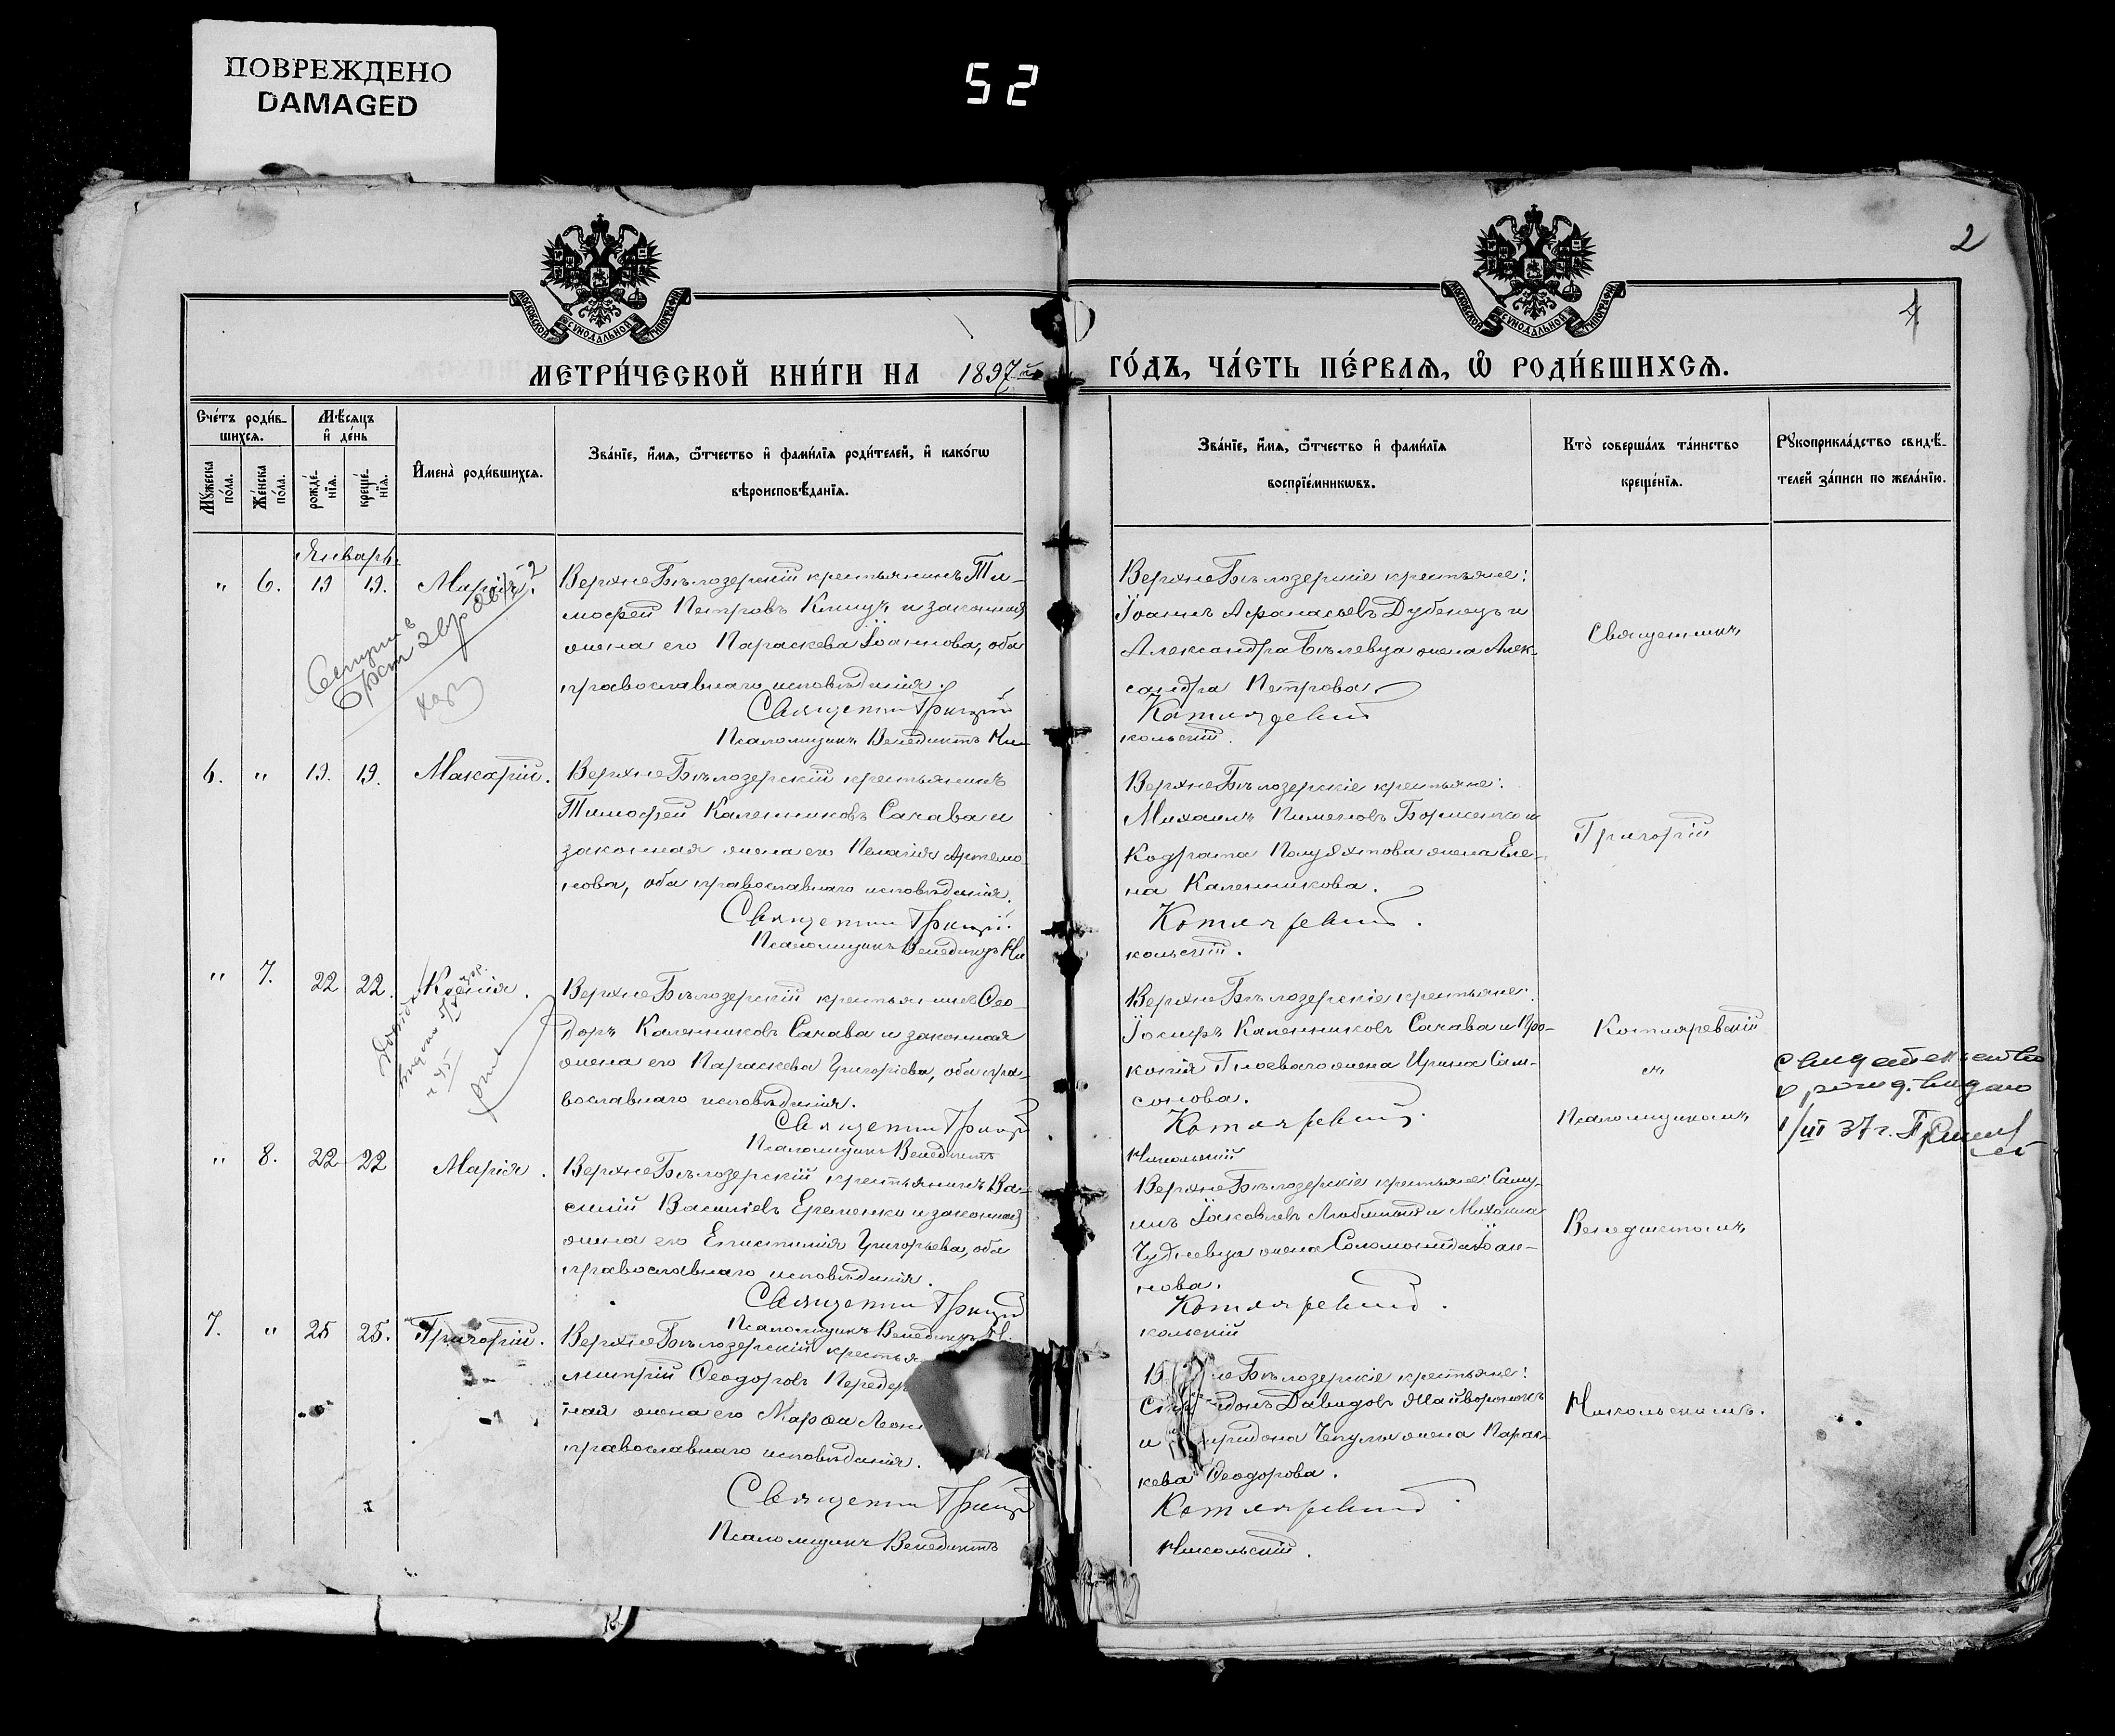 ПОВРЕЖДЕНО
DAMAGED
52
2
4
МОСКОВСКОЙ СУНОДАЛЬНОЙ ТИПОГРАФІИ
МОСКОВСКОЙ СУНОДАЛЬНОЙ ТИПОГРАФІИ
МЕТРИ́ЧЕСКОЙ КНИ́ГИ НА 1897й
ГО́ДЪ, ЧА́СТЬ ПЕ́РВАѦ, Ѡ҆ РОДИ́ВШИХСѦ.
Сче́тъ роди́в-
шихсѧ.
Мѣ́сѧцъ
и҆ де́нь
Мꙋ́жеска по́ла.
Же́нска по́ла.
рожде́-нїѧ.
креще́-нїѧ.
И҆мена̀ роди́вшихсѧ.
Зва́нїе, и҆́мѧ, ѻ҆́тчество и҆ фами́лїѧ роди́телей, и҆ како́гѡ
вѣроисповѣ́данїѧ.
Зва́нїе, и҆́мѧ, ѻ҆́тчество и҆ фами́лїѧ
воспрїе́мникѡвъ.
Кто̀ соверша́лъ та́инство
креще́нїѧ.
Рꙋкоприкла́дство свидѣ́-
телей за́писи по жела́нїю.
Январь.
" 6. 19 19. Марія.
ВерхнеБѣлозерскій крестьянинъ Ти-
мофей Петровъ Клищъ и законная
жена его Параскева Іоаннова, оба
православнаго исповѣданія.
Священник Григорій
Псаломщикъ Венедиктъ Ни-
ВерхнеБѣлозерскіе крестьяне:
Іоаннъ Афанасьевъ Дубенецъ и
Александра Бѣлевца жена Алек-
сандра Петрова.
Котляревский
кольскій.
Священникъ
6. " 19. 19. Макарій.
ВерхнеБѣлозерскій крестьянинъ
Тимофей Калинниковъ Сахава и
законная жена его Пелагія Артемо
нова, оба православнаго исповѣданія.
Священник Григорій.
Псаломщикъ Венедиктъ Ни
ВерхнеБѣлозерскіе крестьяне:
Михаилъ Пименовъ Борисенко и
Кодрата Полуяхтова жена Еле-
на Калинникова.
Котляревский.
кольскій.
Григорій
" 7. 22 22. Ксенія.
ВерхнеБѣлозерскій крестьянинъ Ѳео-
доръ Калинниковъ Сахава и законная
жена его Параскева Григоріева, оба пра-
вославнаго исповѣданія.
Священник Григорий
Псаломщикъ Венедиктъ
ВерхнеБѣлозерскіе крестьяне:
Іосифъ Калинниковъ Сахава и Про-
копія Гноеваго жена Ирина Сам-
сонова.
Котляревский.
Никольскій
Котляревскій
съ
Псаломщикомъ
свидетельство
о рожд. выдано
1/III 37 г.
" 8. 22 22 Марія.
ВерхнеБѣлозерскій крестьянинъ Ва-
силій Васильевъ Еременко и законная
жена его Епистимія Григорьева, оба
православнаго исповѣданія.
Священник Григорий
Псаломщикъ Венедиктъ Ни.
ВерхнеБѣлозерскіе крестьяне: Саму-
илъ Іаковлевъ и Михаила
жена Соломонида Іоан-
нова.
Котляревский.
кольскій
Венедиктомъ
7. " 25 25. Григорій.
ВерхнеБѣлозерскій крестья
митрій Ѳеодоровъ Передер
ная жена его Марѳа Леон
православнаго исповѣданія.
Священник Григорий
Псаломщикъ Венедиктъ
В не Бѣлозерскіе крестьяне:
донъ Давидовъ Жайворонокъ
и ридона жена Парас-
кева Ѳеодорова.
Котляревский.
Никольскій.
Никольскимъ.